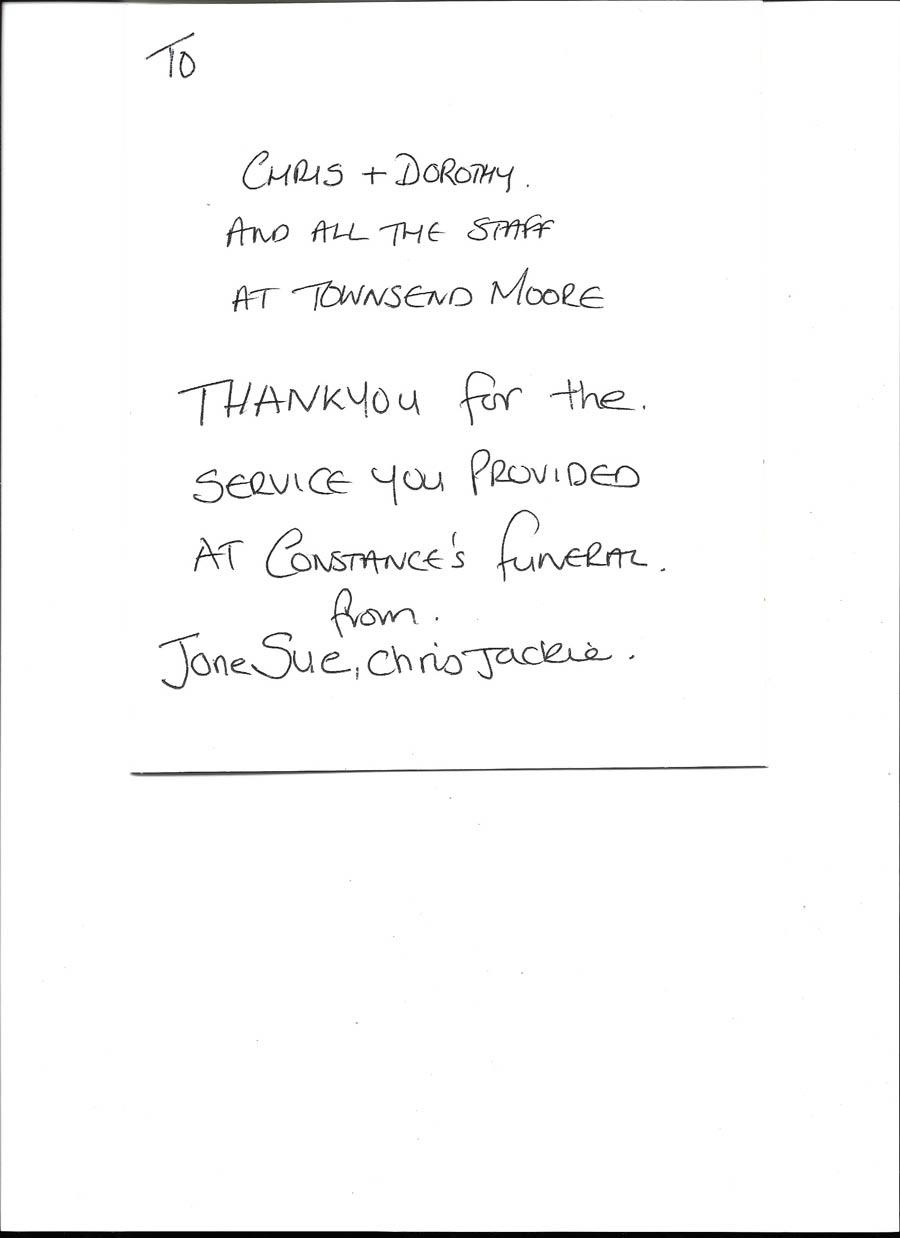 TO
CHRIS + DOROTHY.
AND ALL THE STAFF
AT TOWNSEND MOORE
THANKYOU for the.
SERVICE you PROVIDED
AT CONSTANCE'S fuNERAL.
from.
Jane Sue, Chris Jackie.